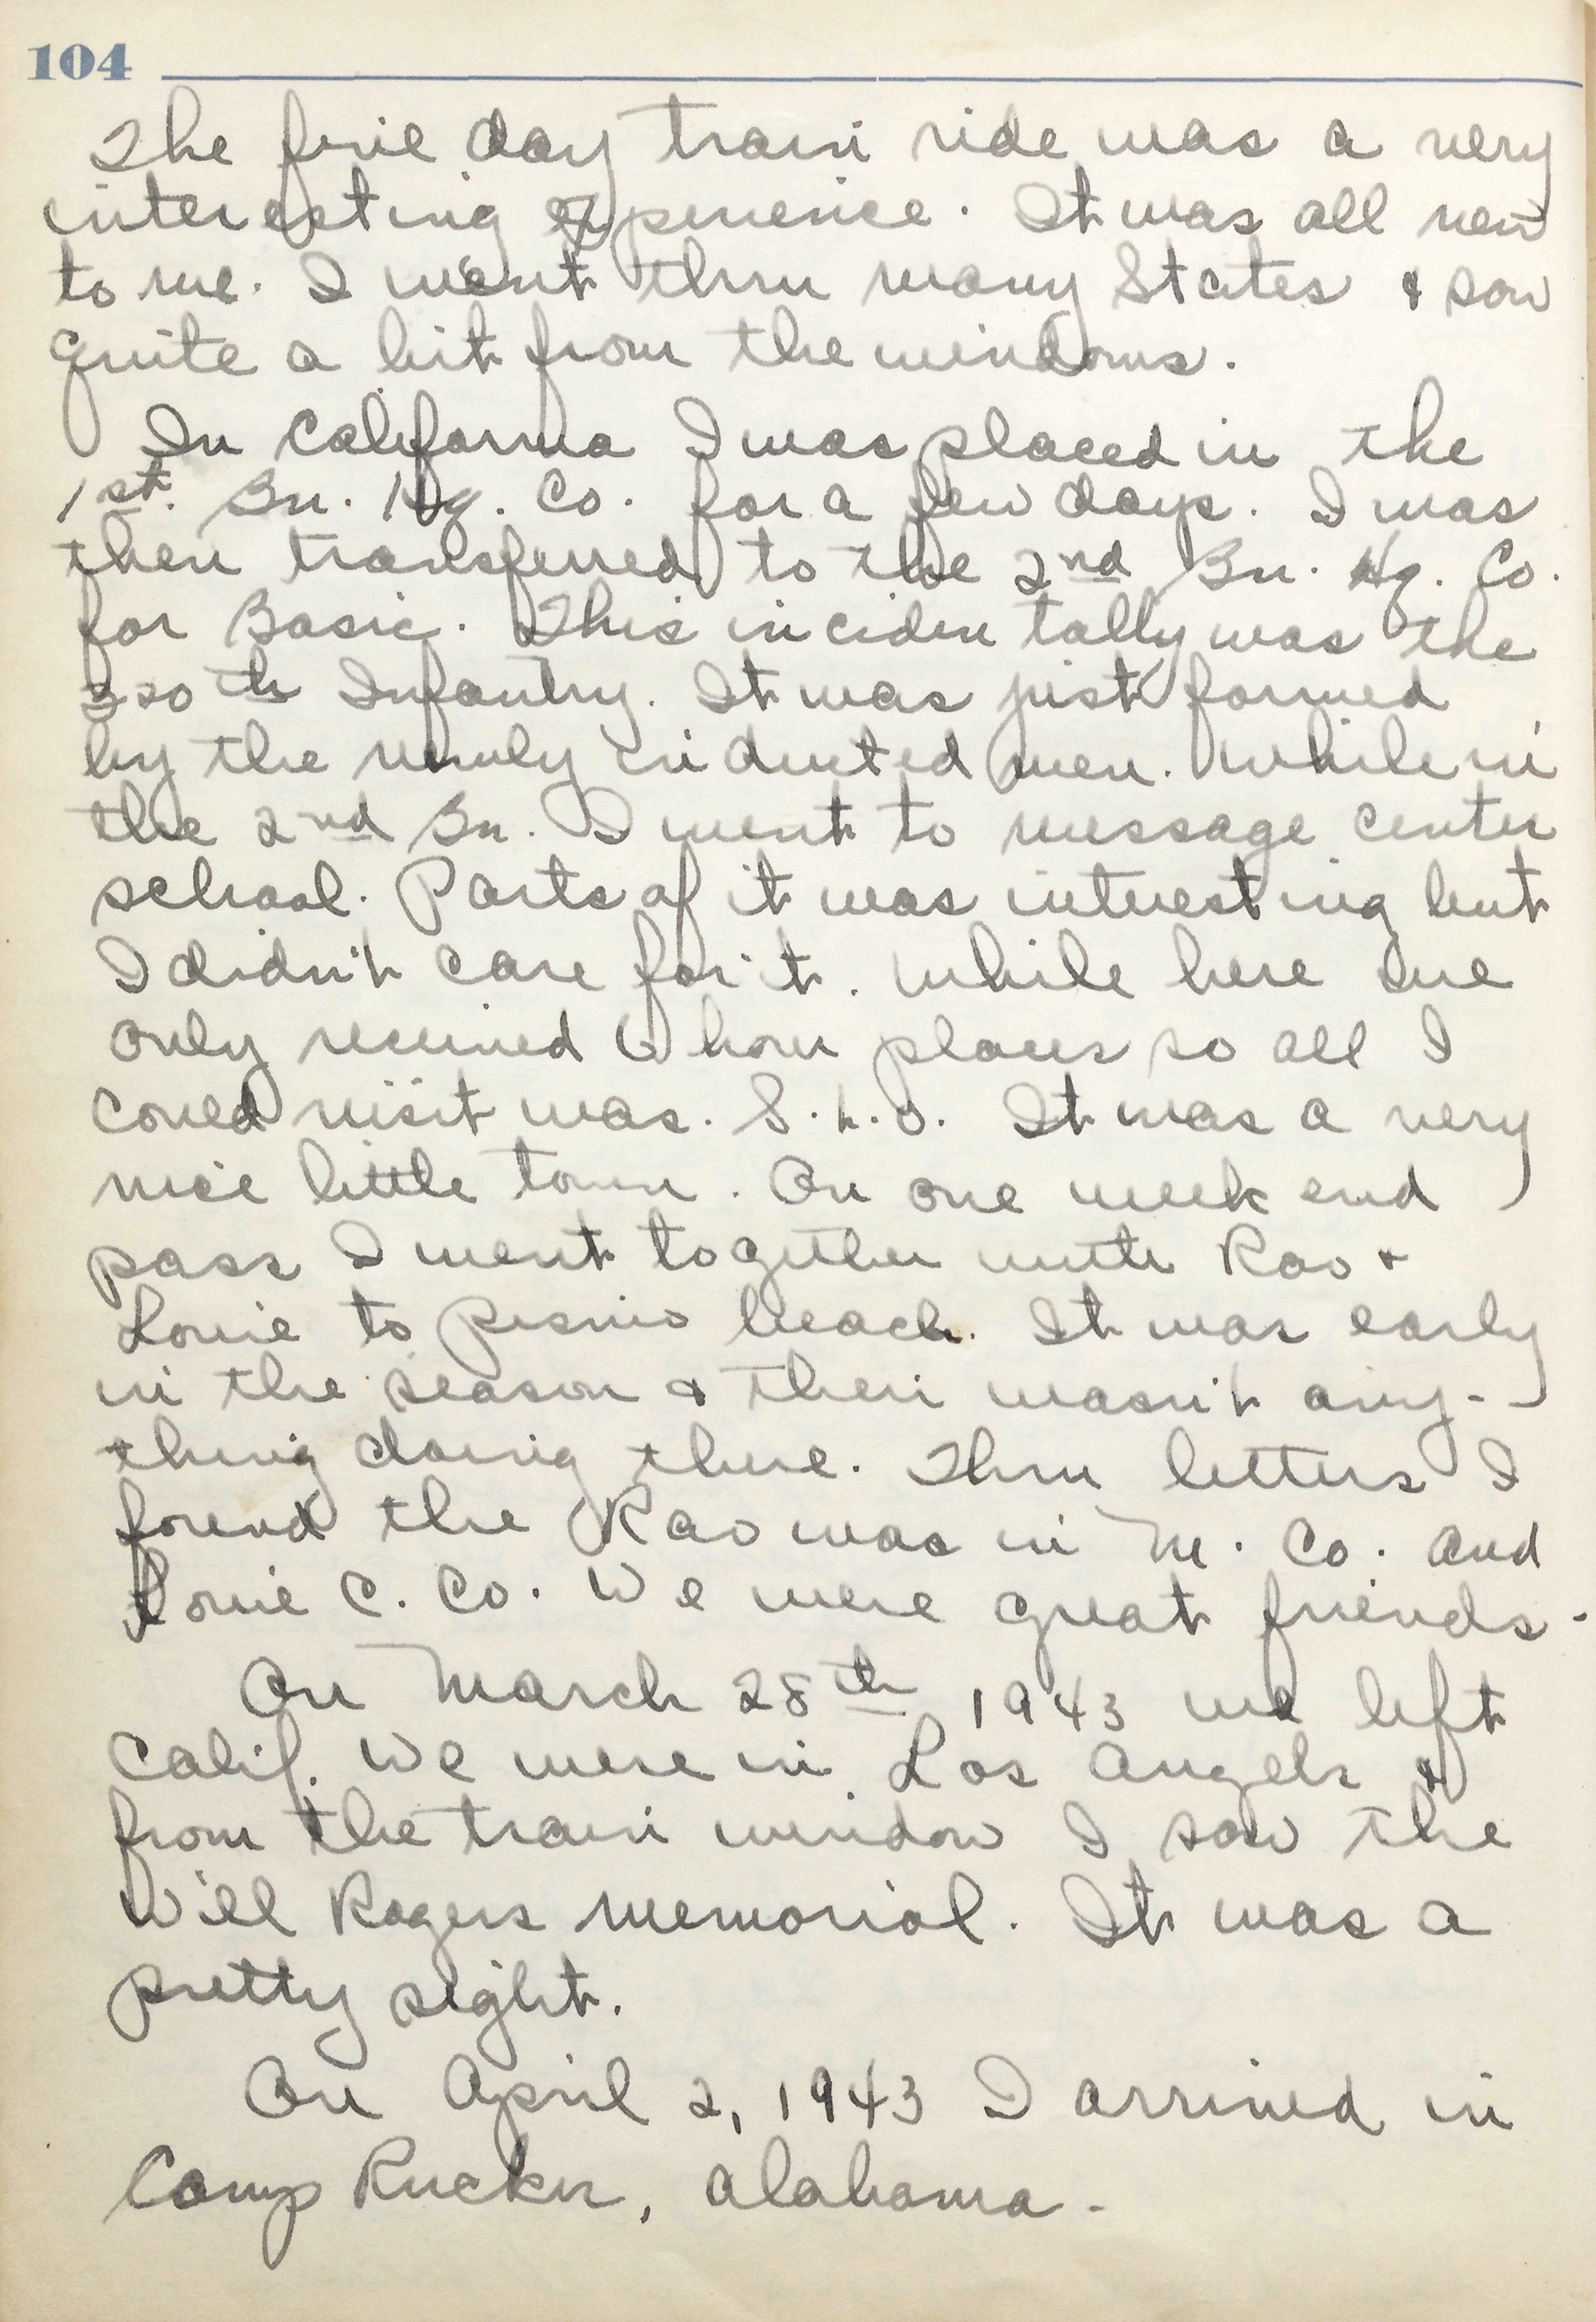 104
The five day train ride was a very
interesting experience. It was all new
to me. I went thru many States & saw
quite a bit from the windows.
In California I was placed in the
1st. Bn. Hq. Co. for a few days. I was
then transferred to the 2nd Bn. Hq. Co.
for Basic. This incidentally was the
320th Infantry. It was just formed
by the newly inducted men. While in
the 2nd Bn. I went to message center
school. Parts of it was interesting but
I didn't care for it. While here we
only received 6 hour passes so all I
could visit was. S.L.O. It was a very
nice little town. On one week end
pass I went together with Rao &
Louie to Pismo beach. It was early
in the season & there wasn't any-
thing doing there. Thru letters I
found the Rao was in M. Co. and
Louie C. Co. We were great friends.
On March 28th 1943 we left
Calif. We were in Los Angels &
from the train window I saw the
Will Rogers memorial. It was a
pretty sight.
On April 2, 1943 I arrived in
Camp Rucker, Alabama.